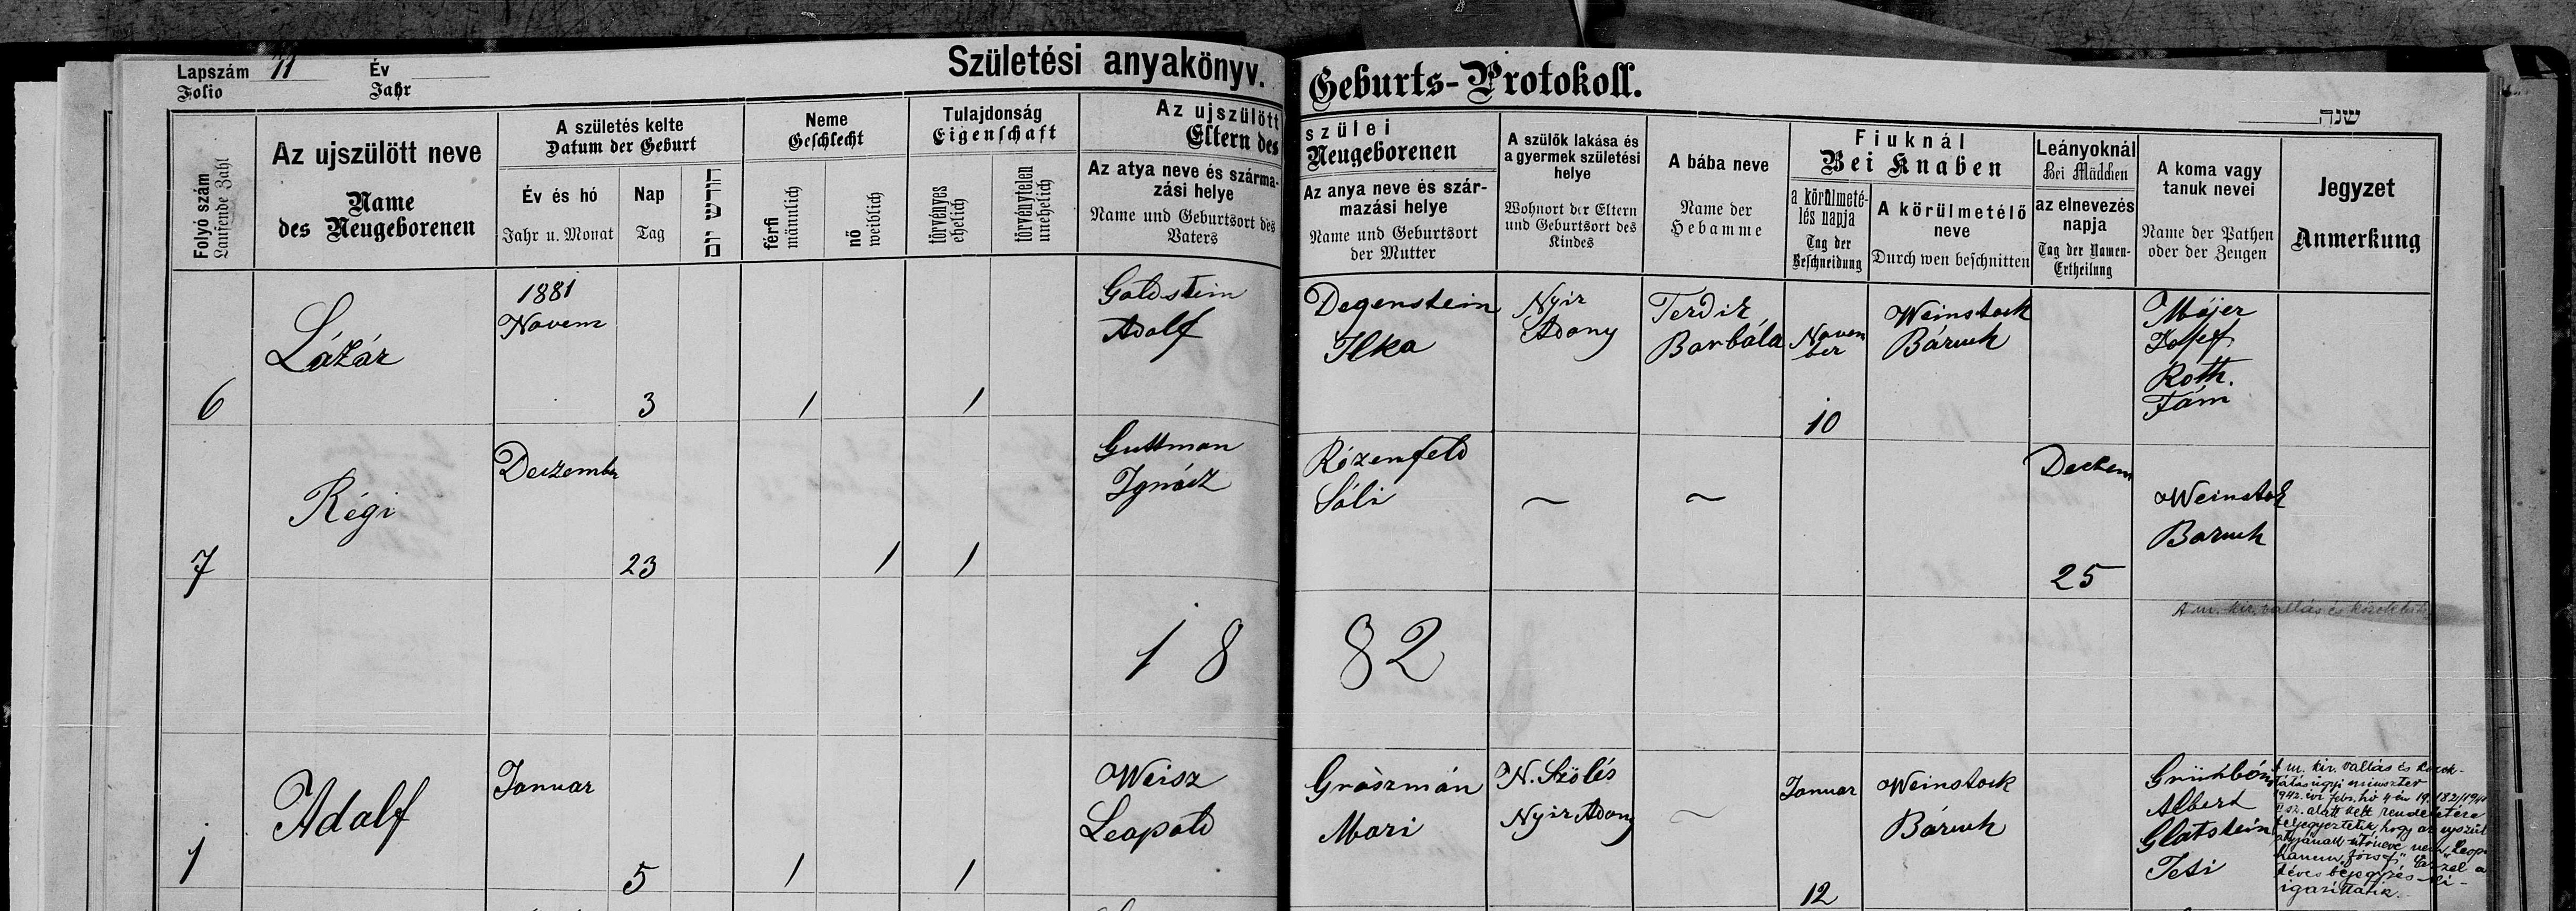 Lapszám 11 Év
Folio Jahr
Születési anyakönyv. Geburts-Protokoll.
שנה
Folyó szám
Laufende Zahl
Az ujszülött neve
Name
des Neugeborenen
A születés kelte
Datum der Geburt
Év és hó
Jahr u. Monat
Nap
Tag
יום חודש
Neme
Geschlecht
férfi
männlich
nő
weiblich
Tulajdonság
Eigenschaft
törvényes
ehelich
törvénytelen
unehelich
Az ujszülött szülei
Eltern des Neugeborenen
Az atya neve és szárma-
zási helye
Name und Geburtsort des
Vaters
Az anya neve és szár-
mazási helye
Name und Geburtsort
der Mutter
A szülők lakása és
a gyermek születési
helye
Wohnort der Eltern
und Geburtsort des
Kindes
A bába neve
Name der
Hebamme
Fiuknál
Bei Knaben
a körülmeté-
lés napja
Tag der
Beschneidung
A körülmetélő
neve
Durch wen beschnitten
Leányoknál
Bei Mädchen
az elnevezés
napja
Tag der Namen-
Ertheilung
A koma vagy
tanuk nevei
Name der Pathen
oder der Zeugen
Jegyzet
Anmerkung
6
Lázár
1881
Novem
3
1
1
Goldstein
Adolf
Degenstein
Ilka
Nyir
Adony
Terdik
Borbála
Novem
ber
10
Weinstock
Báruch
Májer
Josef
Roth.
7
Régi
Deczember
23
1
1
Guttman
Ignácz
Rózenfeld
Sáli
~
~
Deczem
25
Weinstok
Baruch
18 82
A m. kir. vallás és közoktatás
1
Adolf
Januar
5
1
1
Weisz
Leopold
Grószmán
Mari
N. Szölés
Nyir Adony
~
Januar
12
Weinstock
Báruch
Grünbóm
Albert
Glatstein
A m. kir. vallás és közok-
tatásügyi miniszter
1942. évi febr. hó 4-én
sz. alatt kelt rendeletére
feljegyeztetik, hogy az ujszül.
atyjának utóneve nem "Leop."
hanem "József". Ezzel a
téves bejegyzés ki-
igazíttatik.